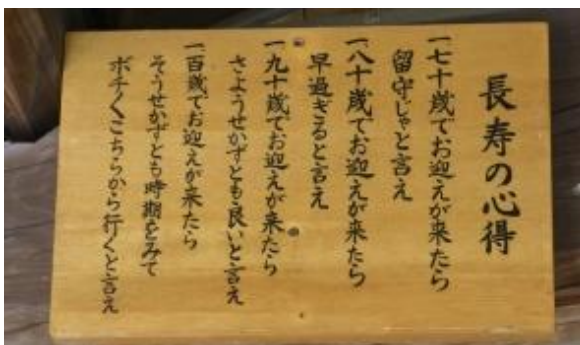 長寿の心得
一七十歳でお迎えが来たら
留守じゃと言え
一八十歳でお迎えが来たら
早過ぎると言え
一九十歳でお迎えが来たら
さようせかずとも良いと言え
一百歳でお迎えが来たら
そうせかずとも時期をみて
ボチ〱こちらから行くと言え